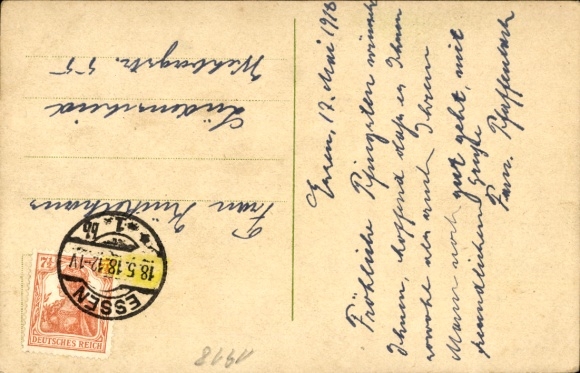 Essen, 17. Mai 1918
Fröhliche Pfingsten wünscht
Ihnen, hoffend daß es Ihnen
sowohl als auch Ihrem
Mann noch gut geht, mit
freundlichem Gruße
Fam. Pfaffenbach
Frau
Lüdenscheid
Wehbergstr. 55
ESSEN
18.5.18.12-1V
* 1 bb
7½
DEUTSCHES REICH
1918